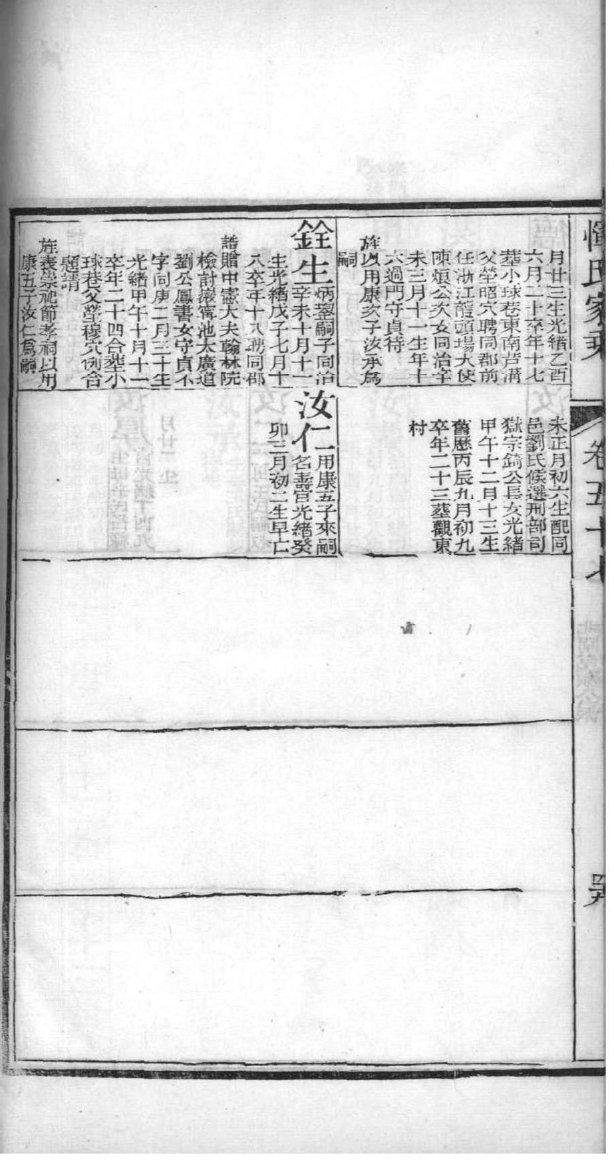 惲氏家乘
卷五十七
月廿三生光緒乙酉
六月二十卒年十七
葬小球巷東南芦溝
父塋昭穴聘同郡前
任浙江龍頭塲大使
陳煩公次女同治辛
未三月十一生年十
六過門守貞待
旌以用康次子汝承爲
嗣
銓生
炳塋嗣子同治
辛未十月十一
生光緒戊子七月十
八卒年十八聘同郡
誥贈中憲大夫翰林院
檢討滾篤池太廣道
劉公鳳書女守貞不
字同庚二月三十生
光緒甲午十月十一
卒年二十四合葬小
球巷父塋穆穴例合
題請
旌表崇祀節孝祠以用
康五子汝仁爲嗣
未正月初六生配同
邑劉氏候選刑部司
獄宗鎬公長女光緒
甲午十二月十三生
舊歷丙辰九月初九
卒年二十三葬觀東
村
汝仁
用康五子來嗣
名壽官光緒癸
卯三月初二生早亡